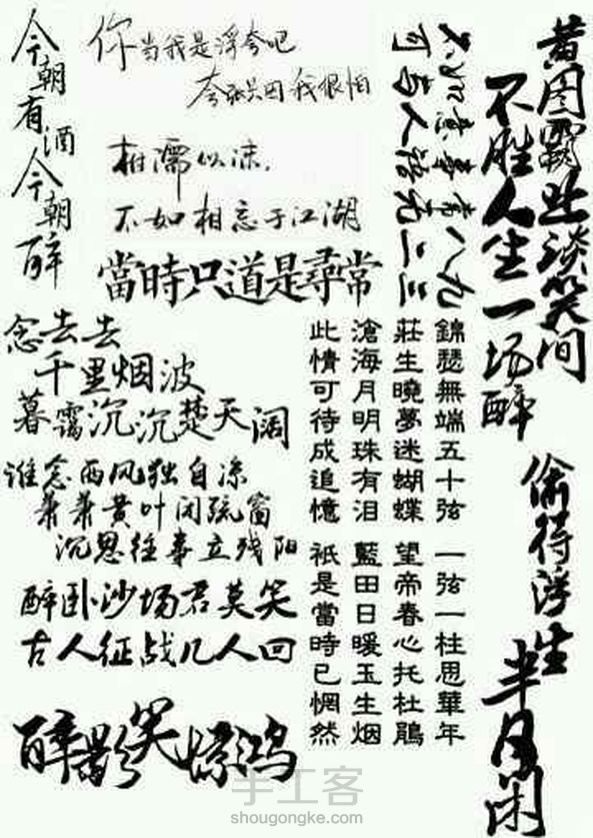 今朝有酒今朝醉
你当我是浮夸吧
夸张只因我很怕
相濡以沫,
不如相忘于江湖
當時只道是尋常
不如意事常八九
可与人语无二三
黄图霸业谈笑间
不胜人生一场醉
念去去
千里烟波
暮霭沉沉楚天阔
谁念西风独自凉
萧萧黄叶闭疏窗
沉思往事立残阳
醉卧沙场君莫笑
古人征战几人回
醉影笑惊鸿
錦瑟無端五十弦 一弦一柱思華年
莊生曉夢迷蝴蝶 望帝春心托杜鵑
滄海月明珠有泪 藍田日暖玉生烟
此情可待成追憶 衹是當時已惘然
偷得浮生
半日闲
手工客
shougongke.com